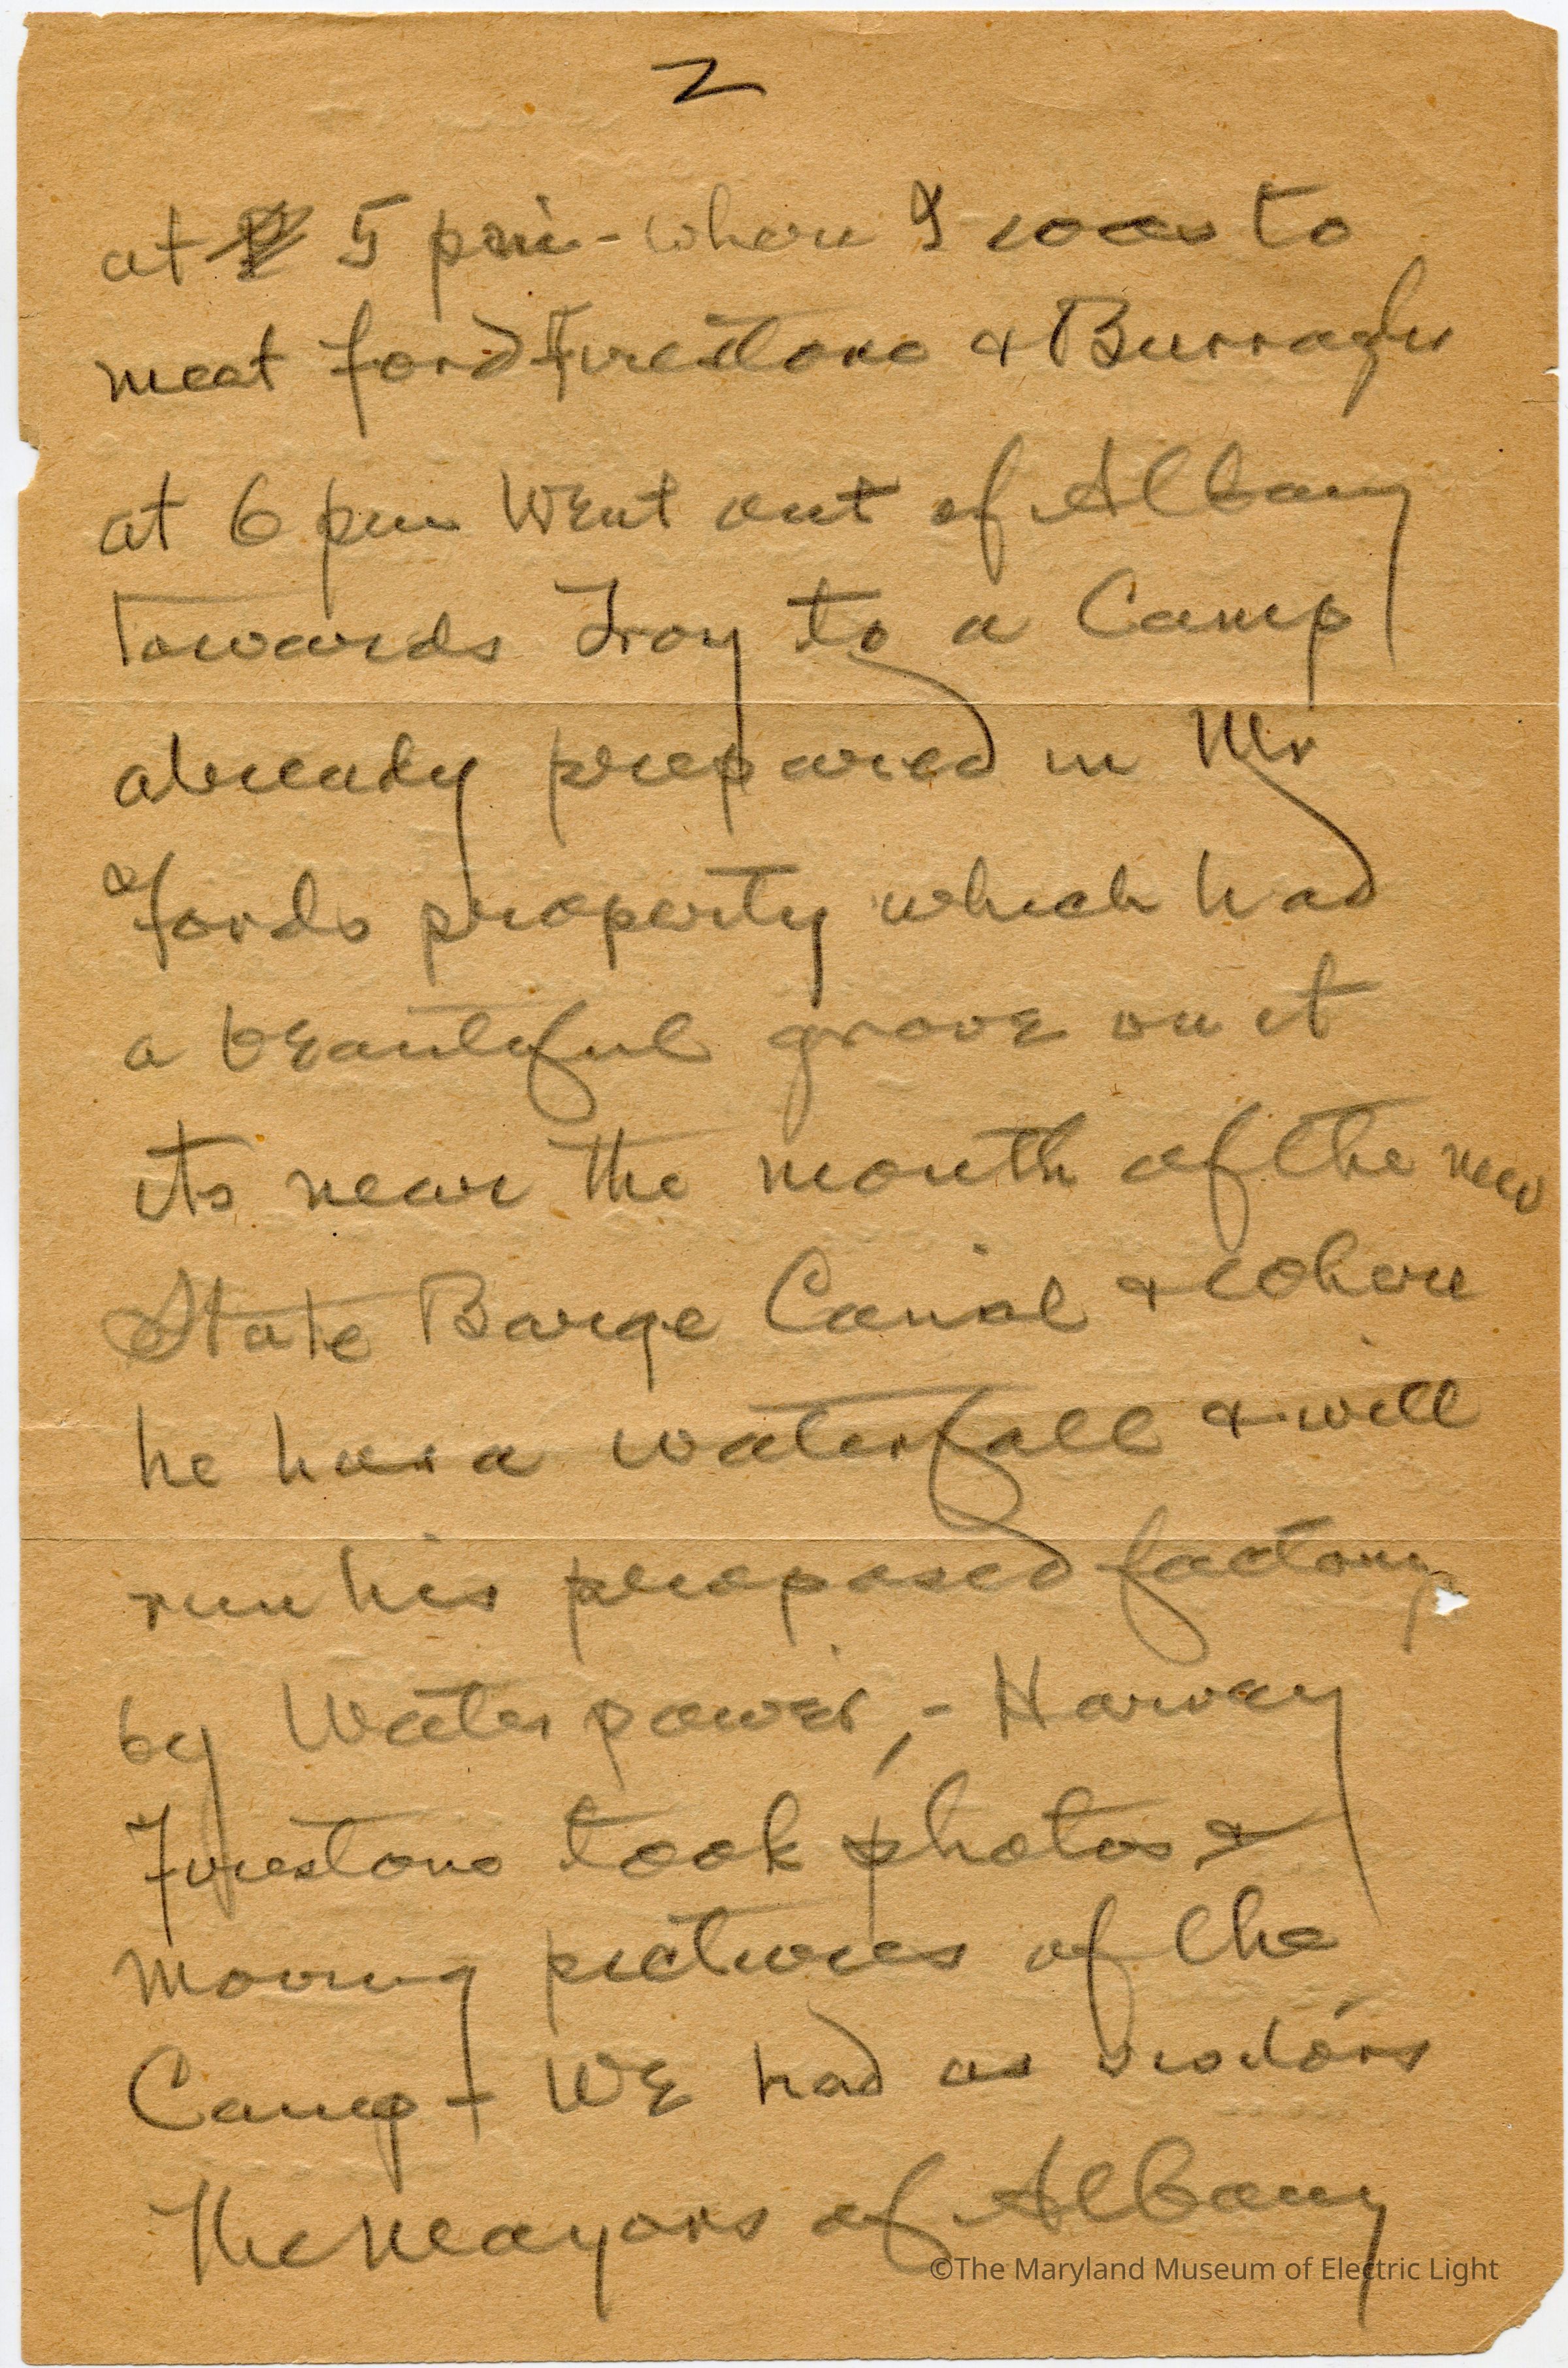 2
at 5 pm - where I was to
meet Ford Firestone & Burroughs
at 6 pm Went out of Albany
Towards Troy to a Camp
already prepared in Mr
Fords property which had
a beautiful grove on it
its near the mouth of the new
State Barge Canal & where
he has a waterfall & will
run his proposed factory
by Water power, - Harvey
Firestone took photos &
moving pictures of the
Camp - WE had as visitors
The Mayors of Albany
©The Maryland Museum of Electric Light